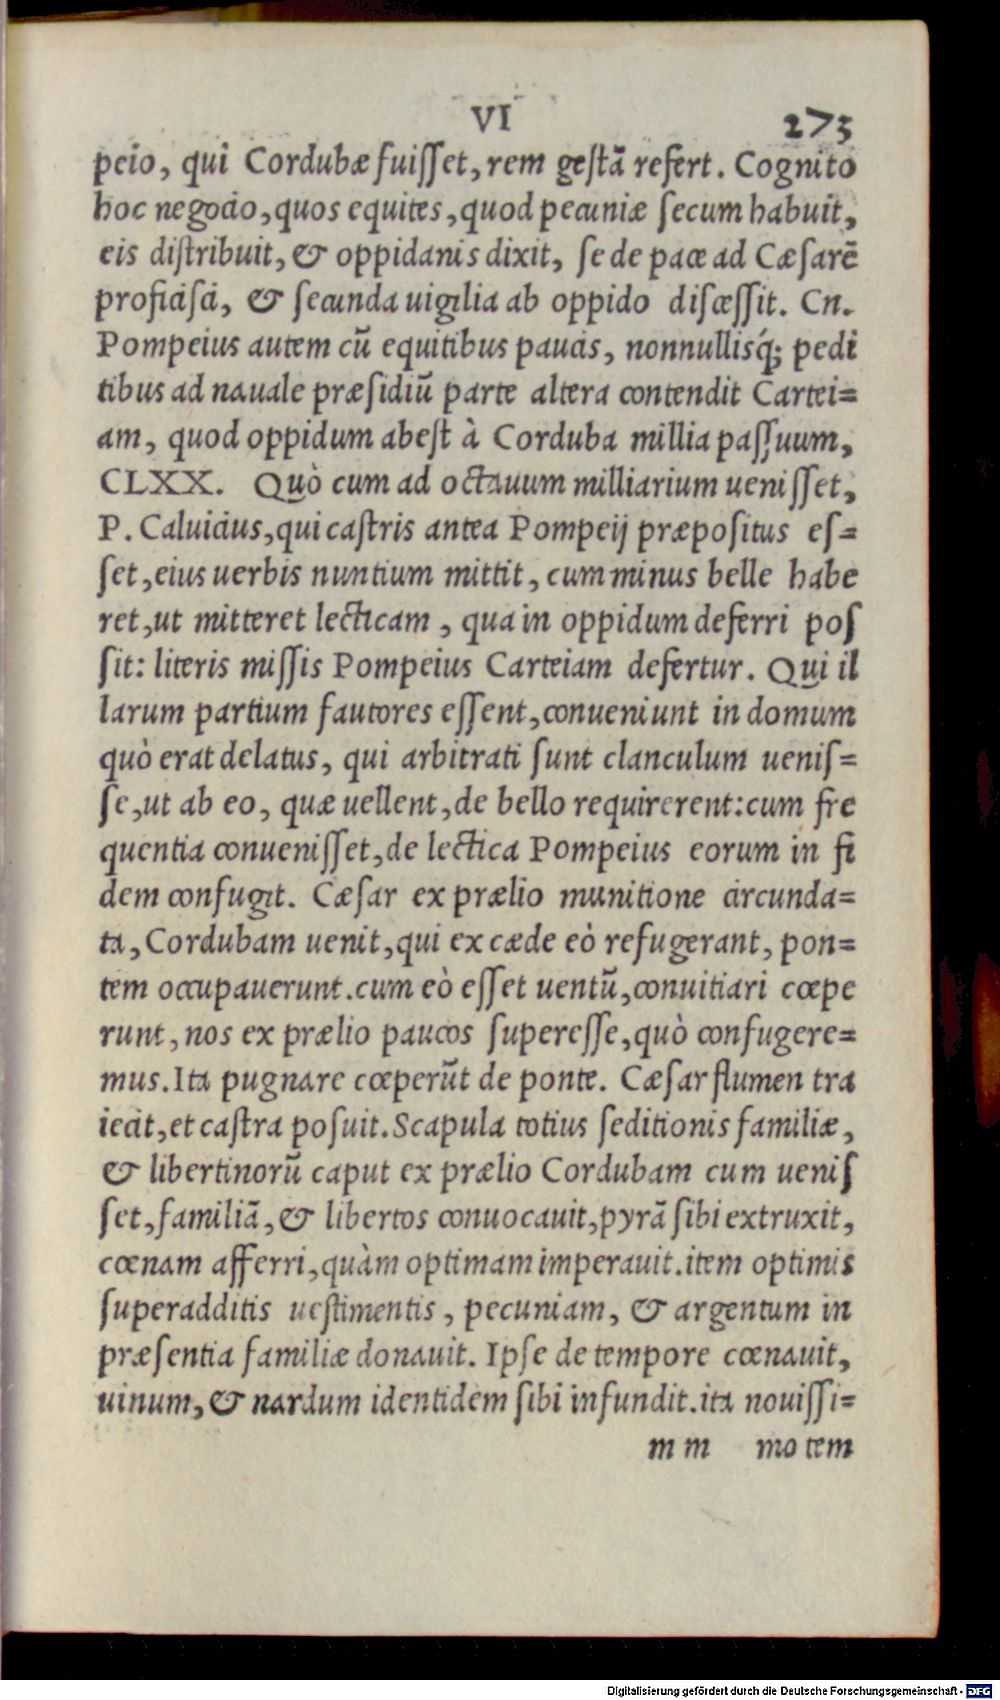 VI 273
peio, qui Cordubæ fuiſſet, rem geſtã refert. Cognito
hoc negocio, quos equites, quod pecuniæ ſecum habuit,
eis diſtribuit, & oppidanis dixit, ſe de pace ad Cæſarẽ
proficiſci, & ſecunda uigilia ab oppido diſceſſit. Cn.
Pompeius autem cũ equitibus paucis, nonnullisq́; pedi
tibus ad nauale præſidiũ parte altera contendit Cartei=
am, quod oppidum abeſt à Corduba millia paſſuum,
CLXX. Quò cum ad octauum milliarium ueniſſet,
P. Caluicius, qui caſtris antea Pompeij præpoſitus eſ=
ſet, eius uerbis nuntium mittit, cum minus belle habe
ret, ut mitteret lecticam, qua in oppidum deferri poſ
ſit: literis miſſis Pompeius Carteiam defertur. Qui il
larum partium fautores eſſent, conueniunt in domum
quò erat delatus, qui arbitrati ſunt clanculum ueniſ=
ſe, ut ab eo, quæ uellent, de bello requirerent: cum fre
quentia conueniſſet, de lectica Pompeius eorum in fi
dem confugit. Cæſar ex prælio munitione circunda=
ta, Cordubam uenit, qui ex cæde eò refugerant, pon=
tem occupauerunt. cum eò eſſet uentũ, conuitiari cœpe
runt, nos ex prælio paucos ſupereſſe, quò confugere=
mus. Ita pugnare cœperũt de ponte. Cæſar flumen tra
iecit, et caſtra poſuit. Scapula totius ſeditionis familiæ,
& libertinorũ caput ex prælio Cordubam cum ueniſ
ſet, familiã, & libertos conuocauit, pyrã ſibi extruxit,
cœnam afferri, quàm optimam imperauit. item optimis
ſuperadditis ueſtimentis, pecuniam, & argentum in
præſentia familiæ donauit. Ipſe de tempore cœnauit,
uinum, & nardum identidem ſibi infundit. ita nouiſſi=
m m mo tem
Digitalisierung gefördert durch die Deutsche Forschungsgemeinschaft - DFG